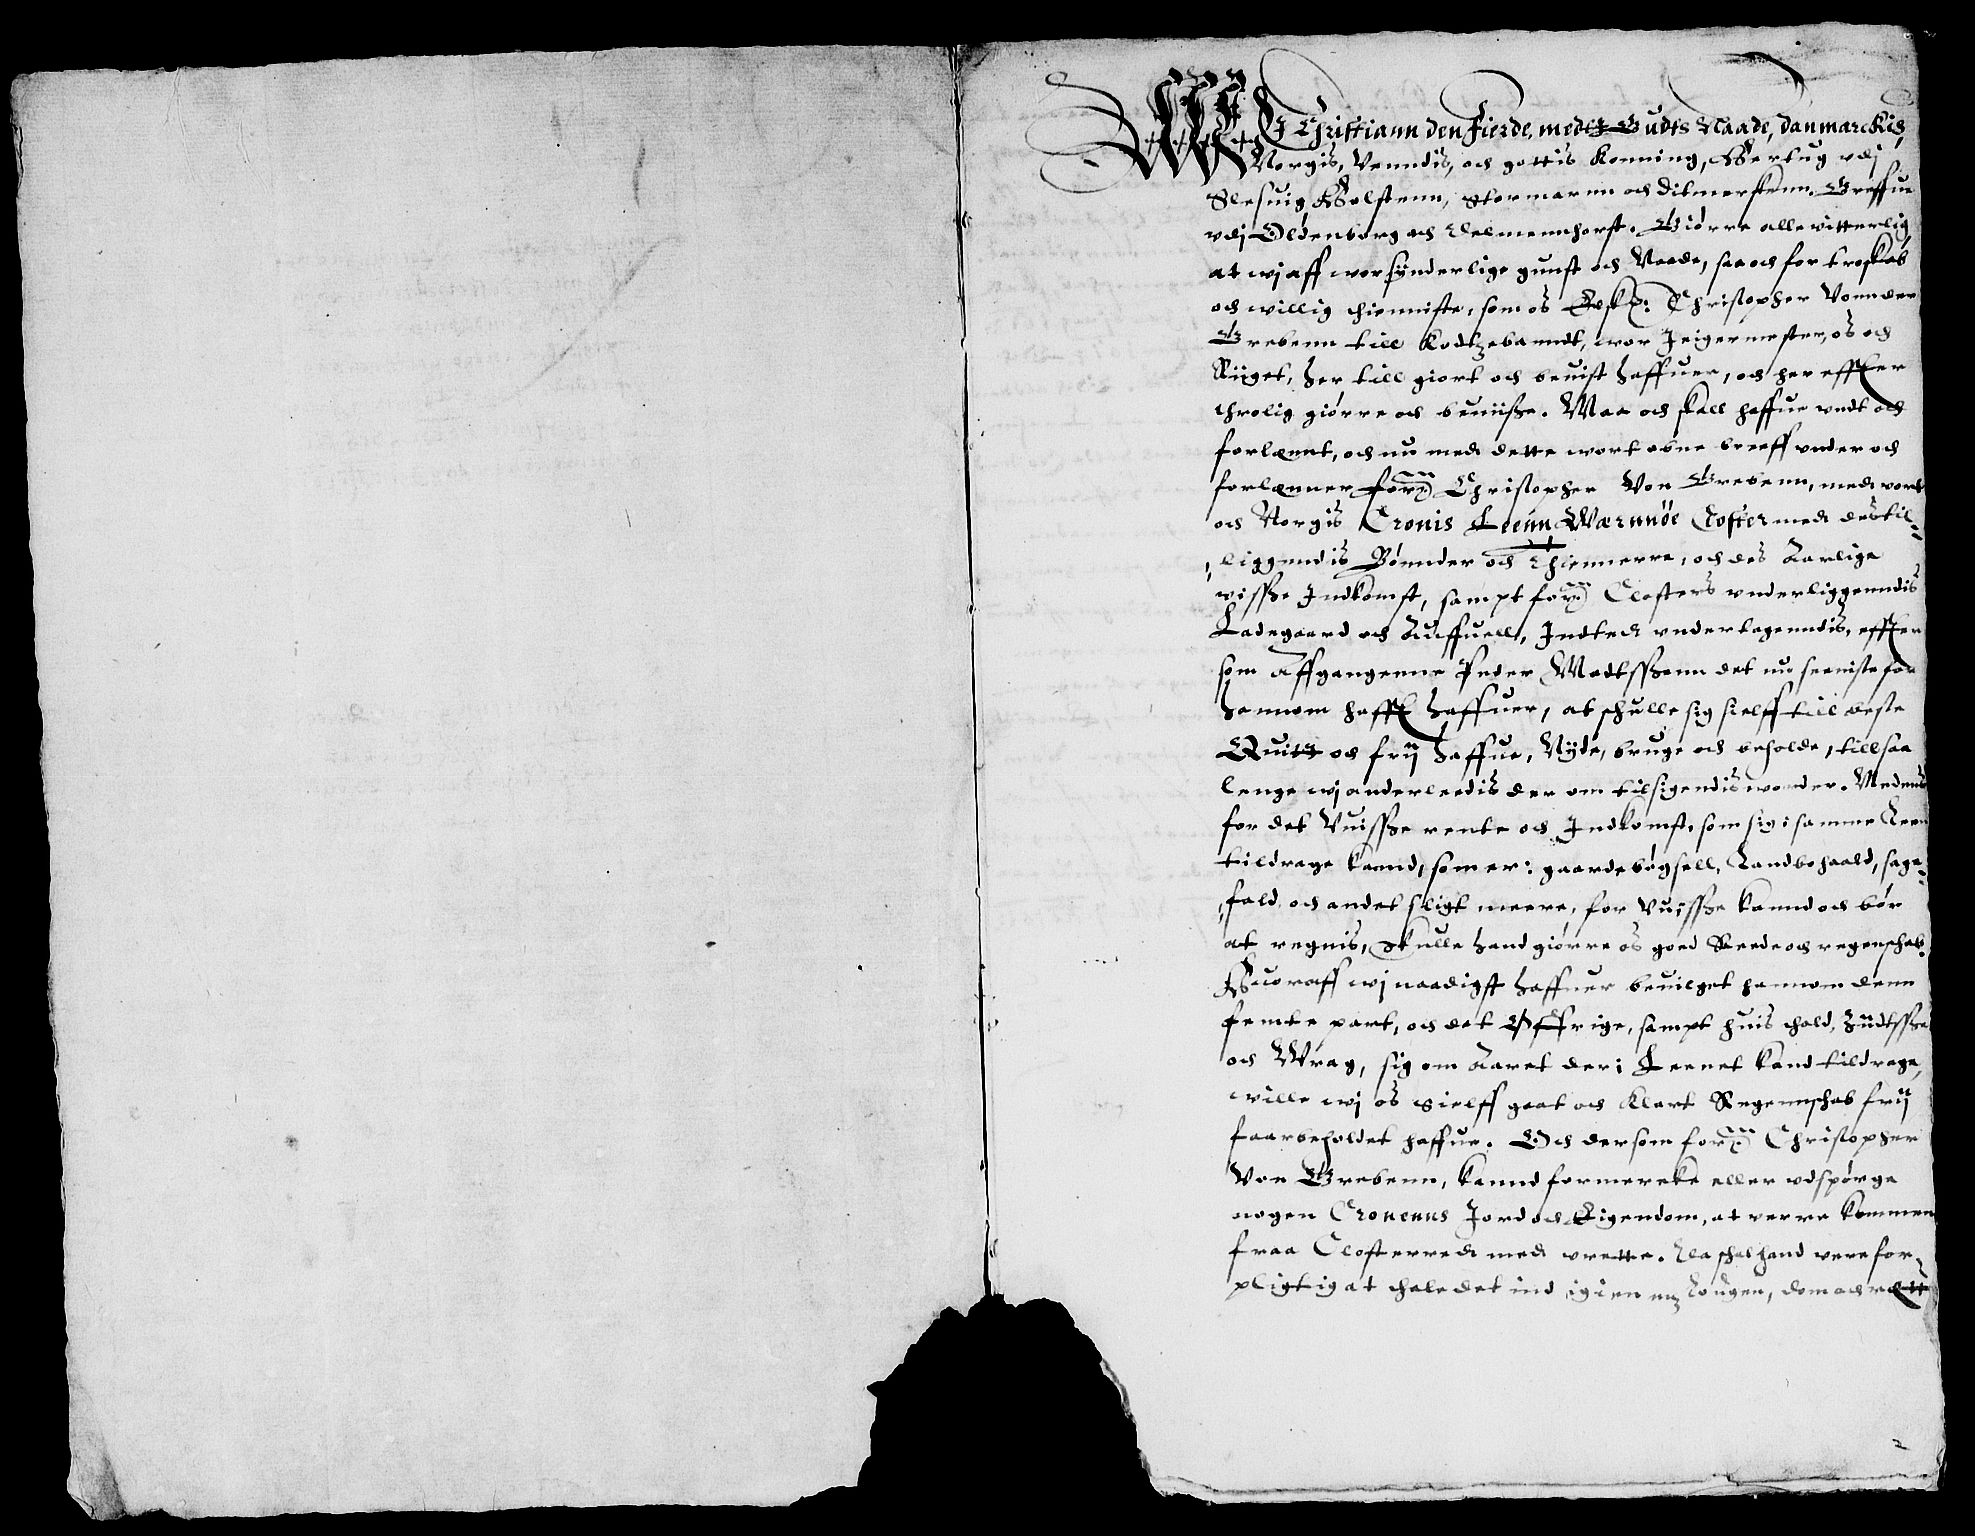 WJ Christiann den Fierde, medt Gudts Naade, Danmarckis,
Norgis, Venndis, och gottis Konning, Hertug vdj
Slesuig Holstenn, Stormarnn och Ditmerskenn. Greffue
vdj Oldenborg och Delmennhorst. Giörre alle vitterlig
at wj aff wor synderlige gunst och Naade, saa och for troskab
och willig thienniste, som os Elsk: Christopher Vonnder
Grebenn till Kodtzebanndt, wor Jeigermester, os och
Riiget, her till giort och beuist haffuer, och her effter
throlig giörre och beuiisse. Maa och skall haffue vndt och
forlænnt, och nu med dette wort obne breeff vnder och
forlænner for.ne Christopher Von Grebenn, med vort
och Norgis Cronis Leenn Wærnnöe Closter med des til-
liggendis Bönnder och Thiennerre, och des Aarlige
visse Indkomst, sampt for.ne Closters vnderliggenndis
Ladegaard och Auffuell, Indted vndertagenndis, effter
som Affgangenne Peder Madtssenn det nu seeniste for
hannom hafft haffuer, at schulle sig sielff till beste
Quitt och frij haffue, Nyde, bruge och beholde, till saa
lenge wj anderleedis der om tilsigendis worder. Medenns
for det Vuisse rente och Indkomst, som sig i samme Leen
tildrage kannd, som er: gaardebögsell, Landbohaald, sage-
fald och andet sligt meere, for Vuisse kannd och bör
at regnis, skulle hand giörre os goed Reede och regenschab.
Huoraff wj naadigst haffuer beuilget hannom denn
femte part, och det Öffrige, sampt huis thold, Züdtsse
och Wrag, sig om Aaret der i Leenet kand tildrage,
wille wj os sielff gaat och klart Regennschab frij
faarbeholdet haffue. Och dersom for.ne Christopher
Von Grebenn, kannd formercke eller vdspörge
nogen Cronenns Jord och Eigendom, at verre kommen
fraa Closterred med vrette. Da schal hand vere for-
pligtig at thale det ind igien med Lougen, dom och rætt
2